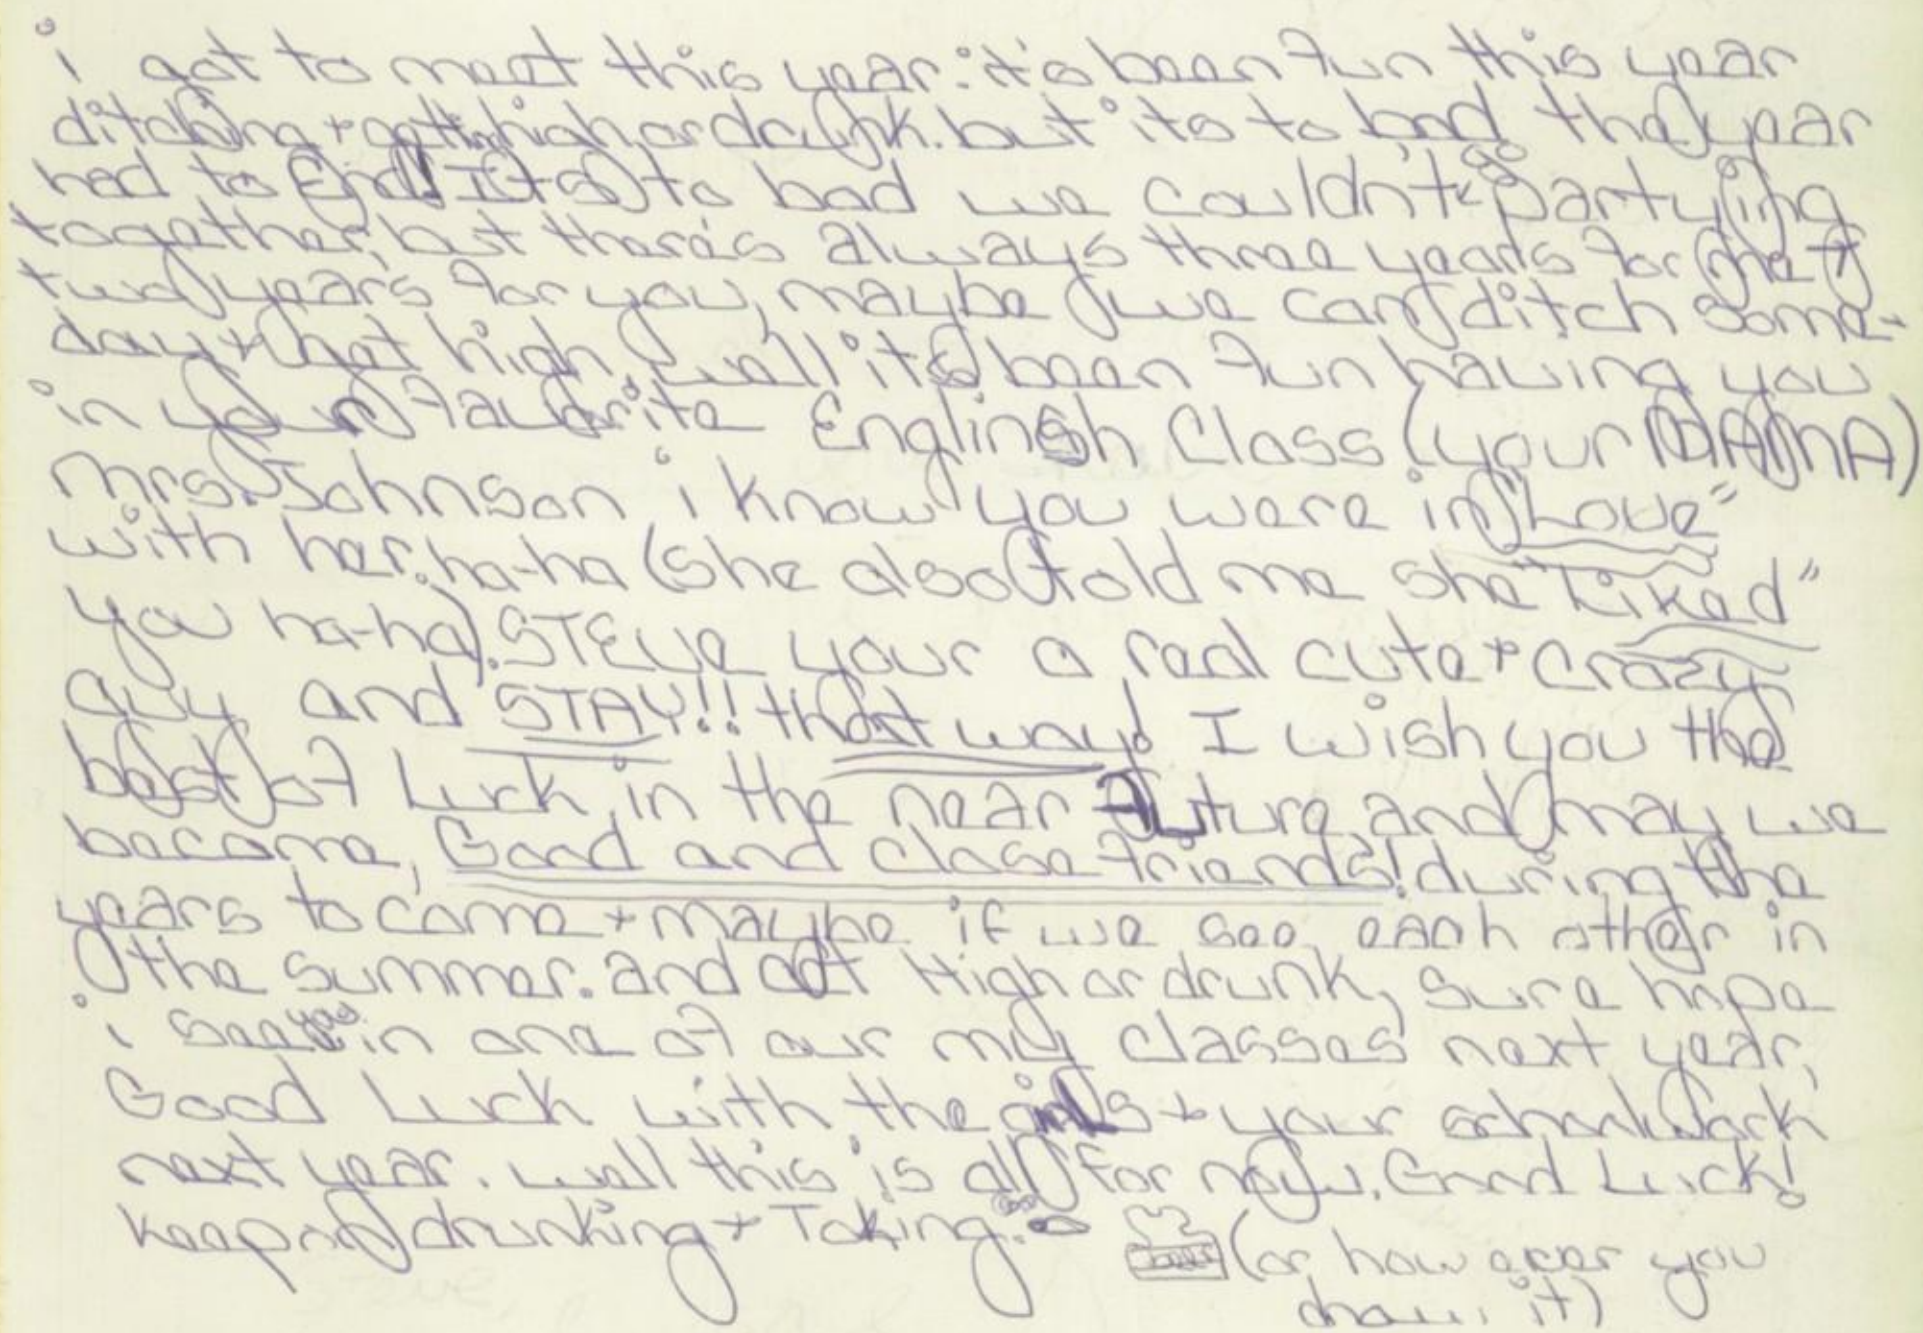 i got to meet this year. it's been fun this year
ditching + gettin high or drunk. but its to bad the year
had to End! Its to bad we couldn't go partying
together, but there's always three years for me &
two years for you, maybe we can ditch some-
day + get high. well its been fun having you
in your favorite English Class (your MAMA)
mrs. Johnson i know you were in "Love"
with her. ha-ha (she also told me she "Liked"
you ha-ha). STEVE your a real cute + crazy
guy and STAY!! that way! I wish you the
best of Luck, in the near future, and may we
become, Good and close friends! during the
years to come + maybe if we see, each other in
the summer. and get High or drunk, sure hope
i see you in one of our my classes next year,
Good Luck with the girls + your schoolwork
next year. well this is all for now. Good Luck!
keep on drunking + Toking.
beer (or how ever you
draw it)